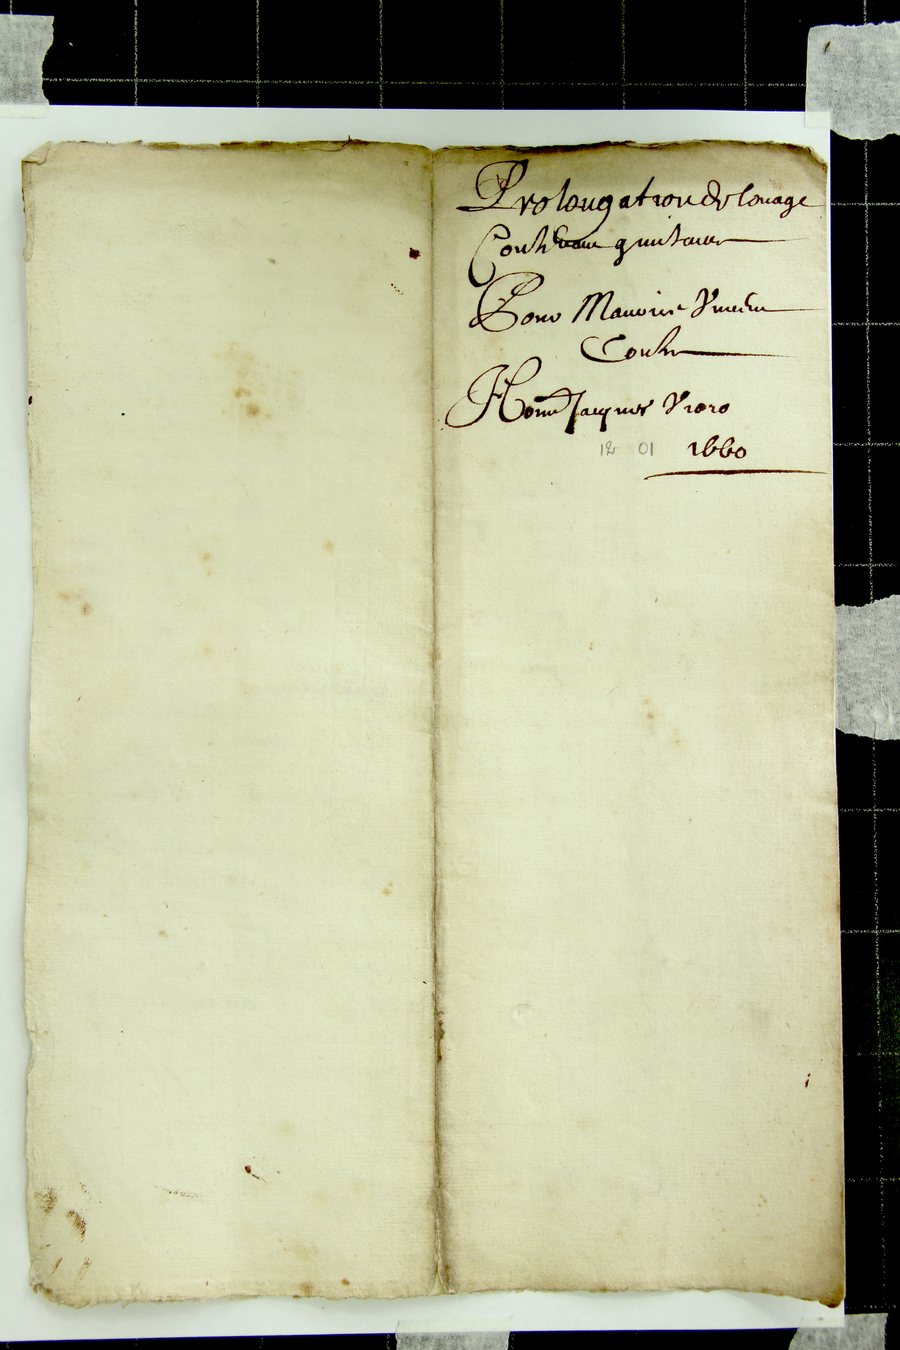 Prolongation de louage
Contenant quittance
Pour Maurice Vincent
Contre
Hon Jacques Vroro
12 01 1660